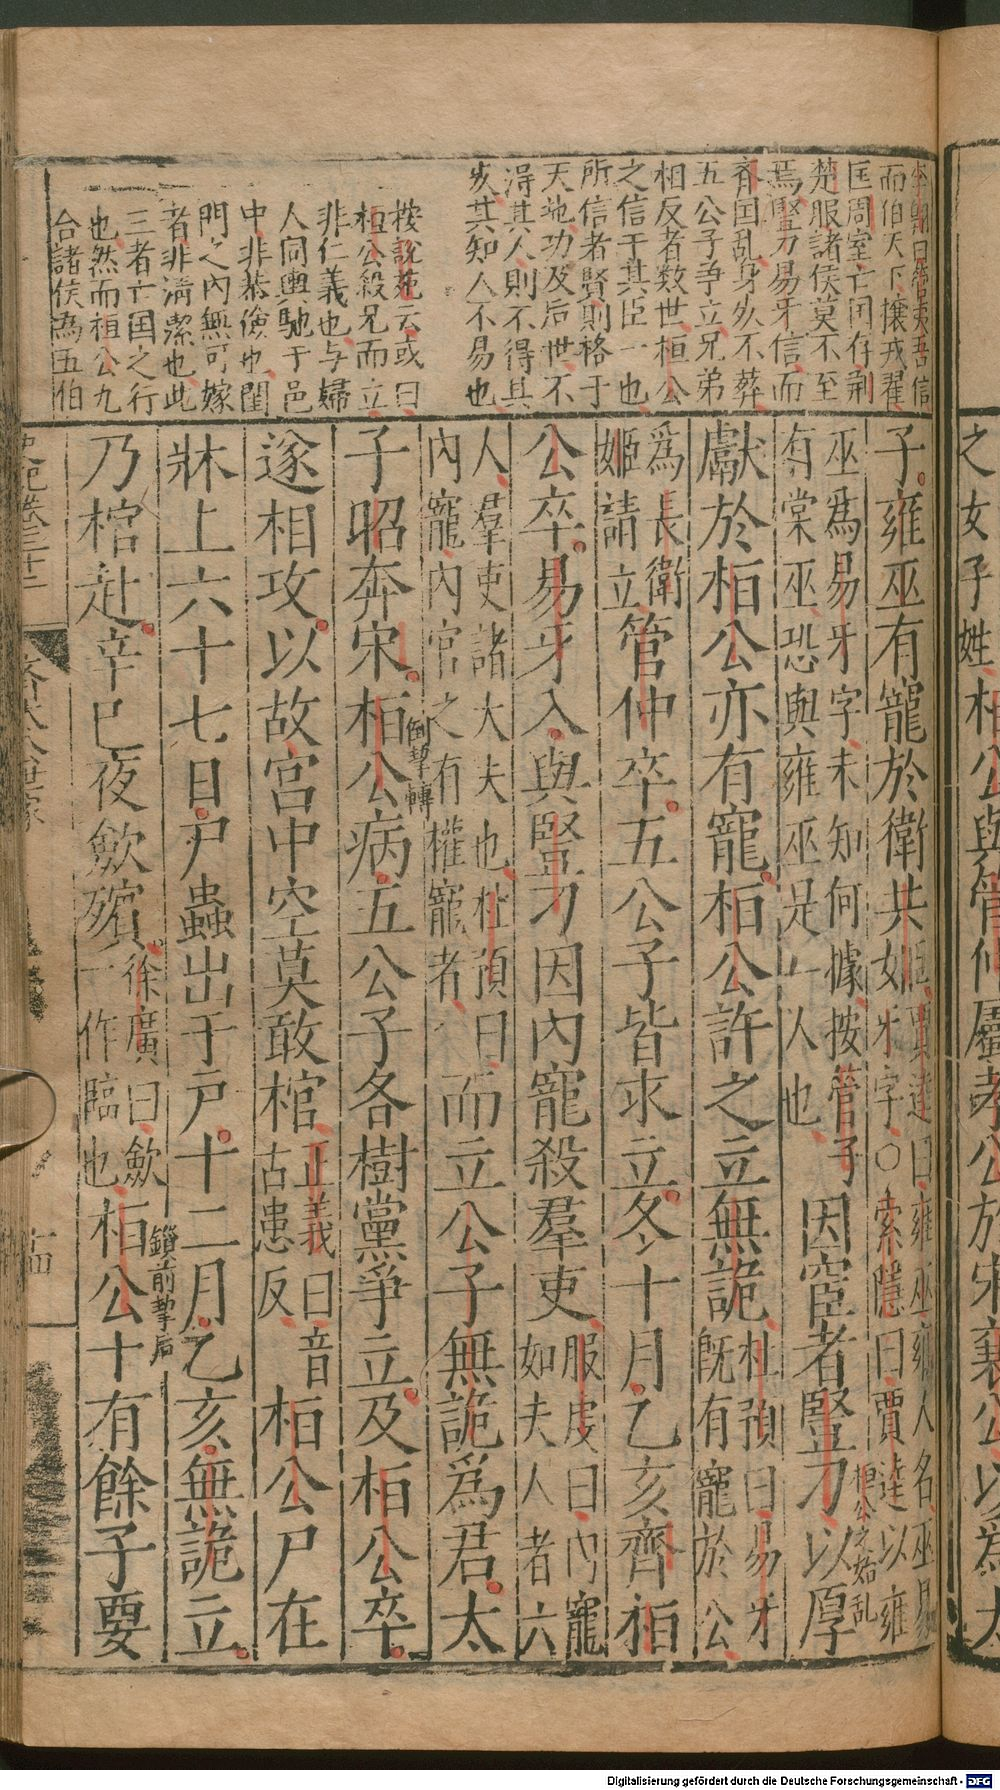 李翺曰管夷吾信
而伯天下攘戎翟
匡周室亡囯存荆
楚服諸侯莫不至
焉豎刀易牙信而
齊囯乱身死不葬
五公子争立兄弟
相反者数世桓公
之信于其臣一也
所信者賢則格于
天地功及后世不
得其人則不得其
死其知人不易也
按說苑云或曰
桓公殺兄而立
非仁義也与婦
人同輿馳于邑
中非恭儉也閨
門之內無可嫁
者非清潔也此
三者亡囯之行
也然而桓公九
合諸侯為五伯
子雍巫有寵於衛共姬
賈逵曰雍巫雍人名巫易
牙字○索隱曰賈逵以雍
巫爲易牙字未知何據按管子
有棠巫恐與雍巫是一人也
因宦者豎刀以厚
桓公之始乱
獻於桓公亦有寵桓公許之立無詭
杜預曰易牙
既有寵於公
爲長衛
姬請立
管仲卒五公子皆求立冬十月乙亥齊桓
公卒易牙入與豎刀因內寵殺羣吏
服虔曰內寵
如夫人者六
人羣吏諸大夫也杜預曰
內寵內官之有權寵者
而立公子無詭爲君太
子昭奔宋桓公病五公子各樹黨爭立及桓公卒
倒挈轉
遂相攻以故宮中空莫敢棺
正義曰音
古患反
桓公尸在
牀上六十七日尸蟲出于戶十二月乙亥無詭立
鎖前挈后
乃棺赴辛巳夜斂殯
徐廣曰斂
一作臨也
桓公十有餘子要
史記卷三十二
齊太公世家
十四
之女子姓桓公與管仲屬孝公於宋襄公以爲太
Digitalisierung gefördert durch die Deutsche Forschungsgemeinschaft - DFG